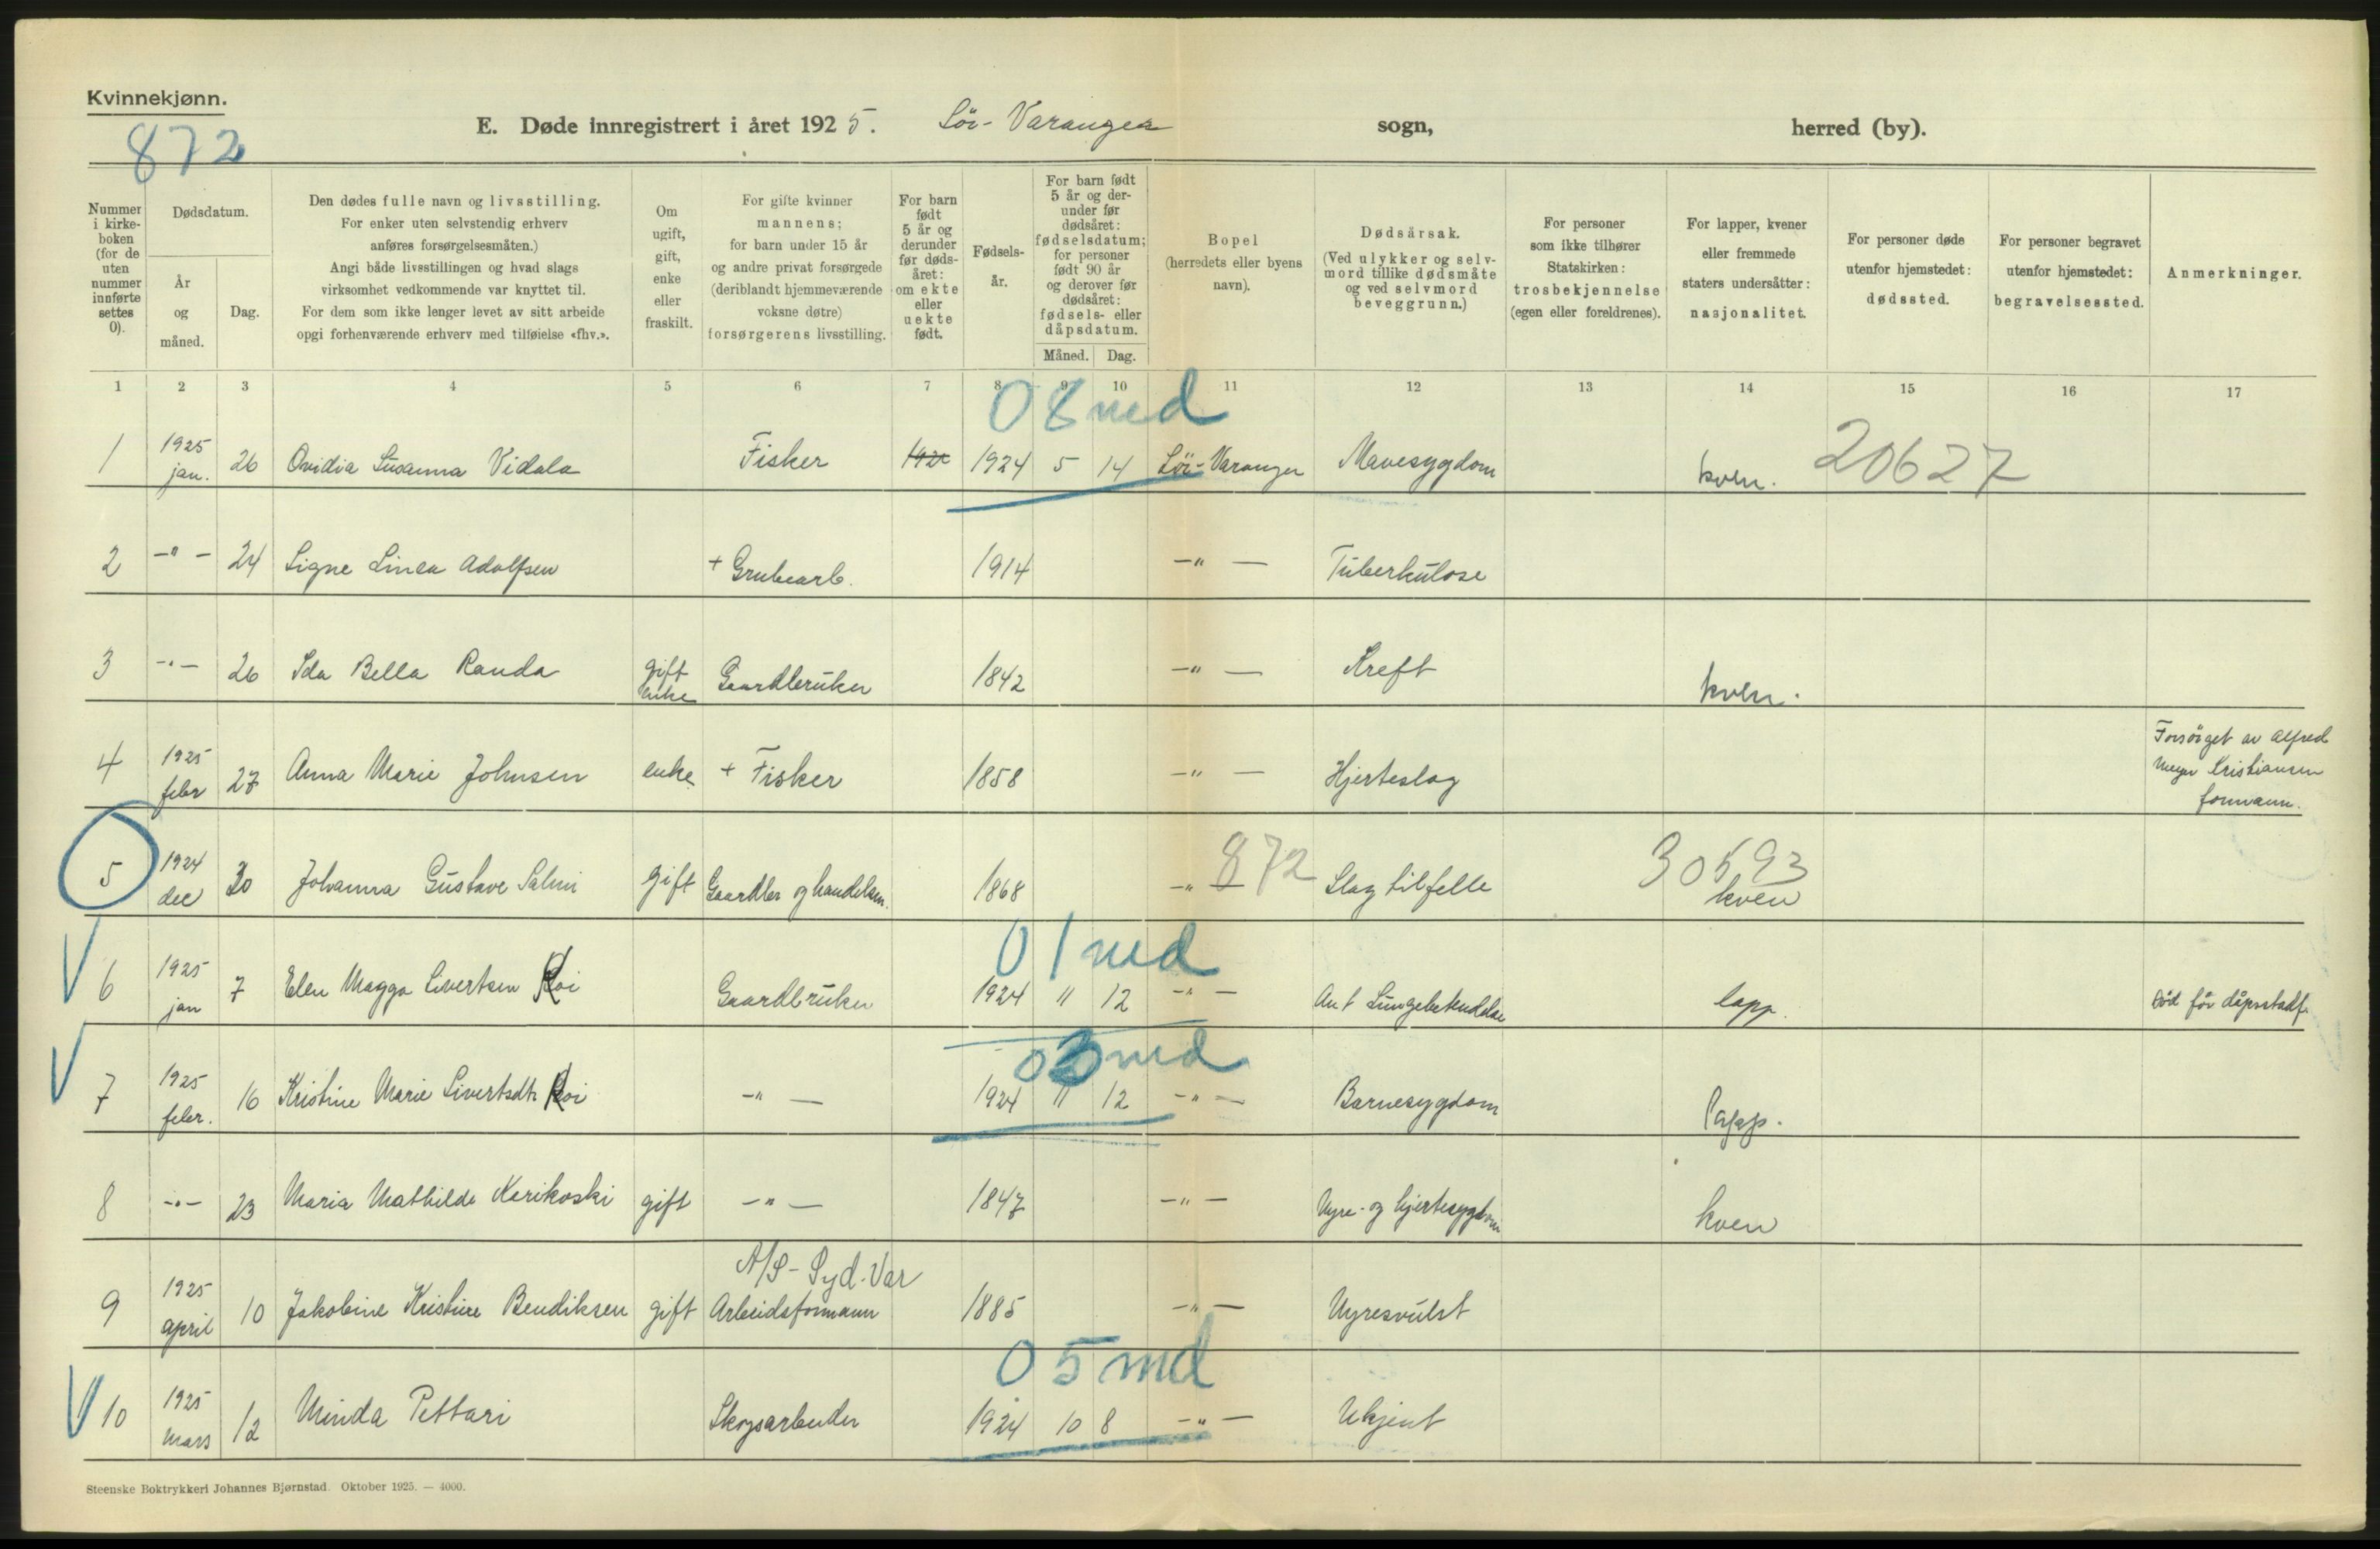 Kvinnekjønn.
872
E. Døde innregistrert i året 1925. Sör-Varanger sogn, herred (by).
Nummer i kirkeboken (for de uten nummer innførte settes 0).
Dødsdatum.
År og måned.
Dag.
Den dødes fulle navn og livsstilling.
For enker uten selvstendig erhverv
anføres forsørgelsesmåten.)
Angi både livsstillingen og hvad slags
virksomhet vedkommende var knyttet til.
For dem som ikke lenger levet av sitt arbeide
opgi forhenværende erhverv med tilføielse «fhv.».
Om ugift, gift, enke eller fraskilt.
For gifte kvinner
mannens;
for barn under 15 år
og andre privat forsørgede
(deriblandt hjemmeværende
voksne døtre)
forsørgerens livsstilling.
For barn født 5 år og derunder før dødsåret: om ekte eller uekte født.
Fødselsår.
For barn født 5 år og derunder før dødsåret: fødselsdatum; for personer født 90 år og derover før dødsåret: fødsels- eller dåpsdatum.
Måned. Dag.
Bopel
(herredets eller byens
navn).
Dødsårsak.
(Ved ulykker og selvmord tillike dødsmåte og ved selvmord beveggrunn.)
For personer
som ikke tilhører
Statskirken:
trosbekjennelse
(egen eller foreldrenes).
For lapper, kvener
eller fremmede
staters undersåtter:
nasjonalitet.
For personer døde
utenfor hjemstedet:
dødssted.
For personer begravet
utenfor hjemstedet:
begravelsessted.
Anmerkninger.
1 2 3 4 5 6 7 8 9 10 11 12 13 14 15 16 17
08 md
1 1925 jan. 26 Ovidia Susanna Vidala Fisker 1924 5 14 Sör-Varanger Mavesygdom kven. 20627
2 -"- 24 Signe Linea Adolfsen + Grubearb. 1914 -"- Tuberkulose
3 -"- 26 Ida Bella Randa gift enke Gaardbruker 1842 -"- Kreft kven.
4 1925 febr 27 Anna Marie Johnsen enke + Fisker 1858 -"- Hjerteslag Forsörget av Alfred
Kristiansen
formann.
5 1924 dec 30 Johanna Gustave Salmi gift Gaardbr og handelsm. 1868 -"- 872 Slagtilfelle 30593 kven
01 md
6 1925 jan 7 Elen Magga Sivertsen Koi Gaardbruker 1924 11 12 -"- Ant Lungebetendelse lapp. död för dåpsstadf.
03 md
7 1925 febr. 16 Kristine Marie Sivertsdtr Koi -"- 1924 11 12 -"- Barnesygdom lapp.
8 -"- 23 Maria Mathilde Karikoski gift -"- 1847 -"- Nyre- og hjertesygdom kven
A/S-Syd.Var
9 1925 april 10 Jakobine Kristine Bendiksen gift Arbeidsformann 1885 -"- Nyresvulst
05 md
10 1925 mars 12 Minda Pettari Skogsarbeider 1924 10 8 -"- Ukjent
Steenske Boktrykkeri Johannes Bjørnstad. Oktober 1925. — 4000.